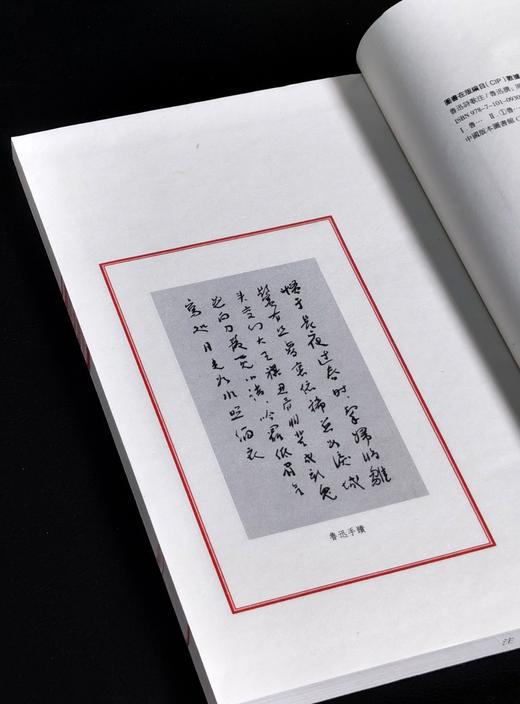 慣于長夜過春時,挈婦將雛
鬢有絲 夢裏依稀慈母淚 城
頭變幻大王旗 忍看朋輩成新鬼
怒向刀叢覓小詩 吟罷低眉無
寫處 月光如水照緇衣
魯迅手蹟
圖書在版編目(CIP)數據
魯迅詩歌注/魯迅撰;
ISBN 978-7-101-0930
Ⅰ.魯… Ⅱ.①魯…
中國版本圖書館(